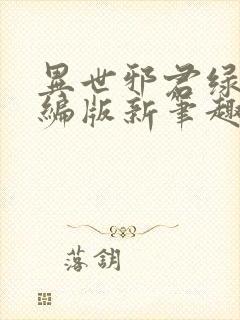 異世邪君绿
编版新筆趣
落鈅